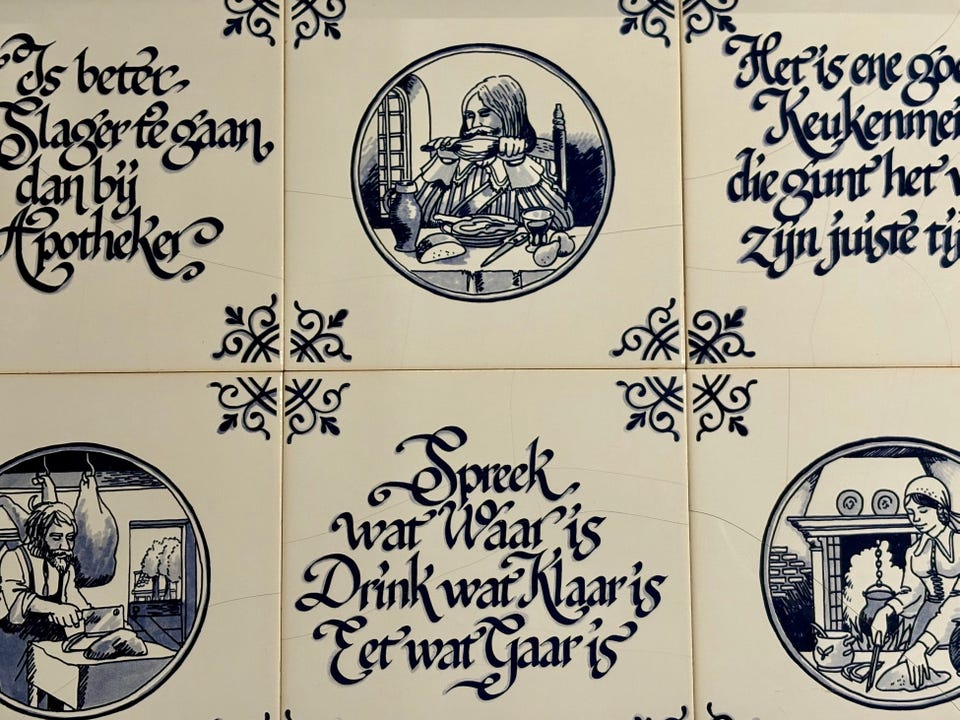 Is beter
Slager te gaan
dan bij
Apotheker
Het is ene
Keukenmei
die gunt het
zijn juiste
Spreek
wat Waar is
Drink wat Klaar is
Eet wat Gaar is